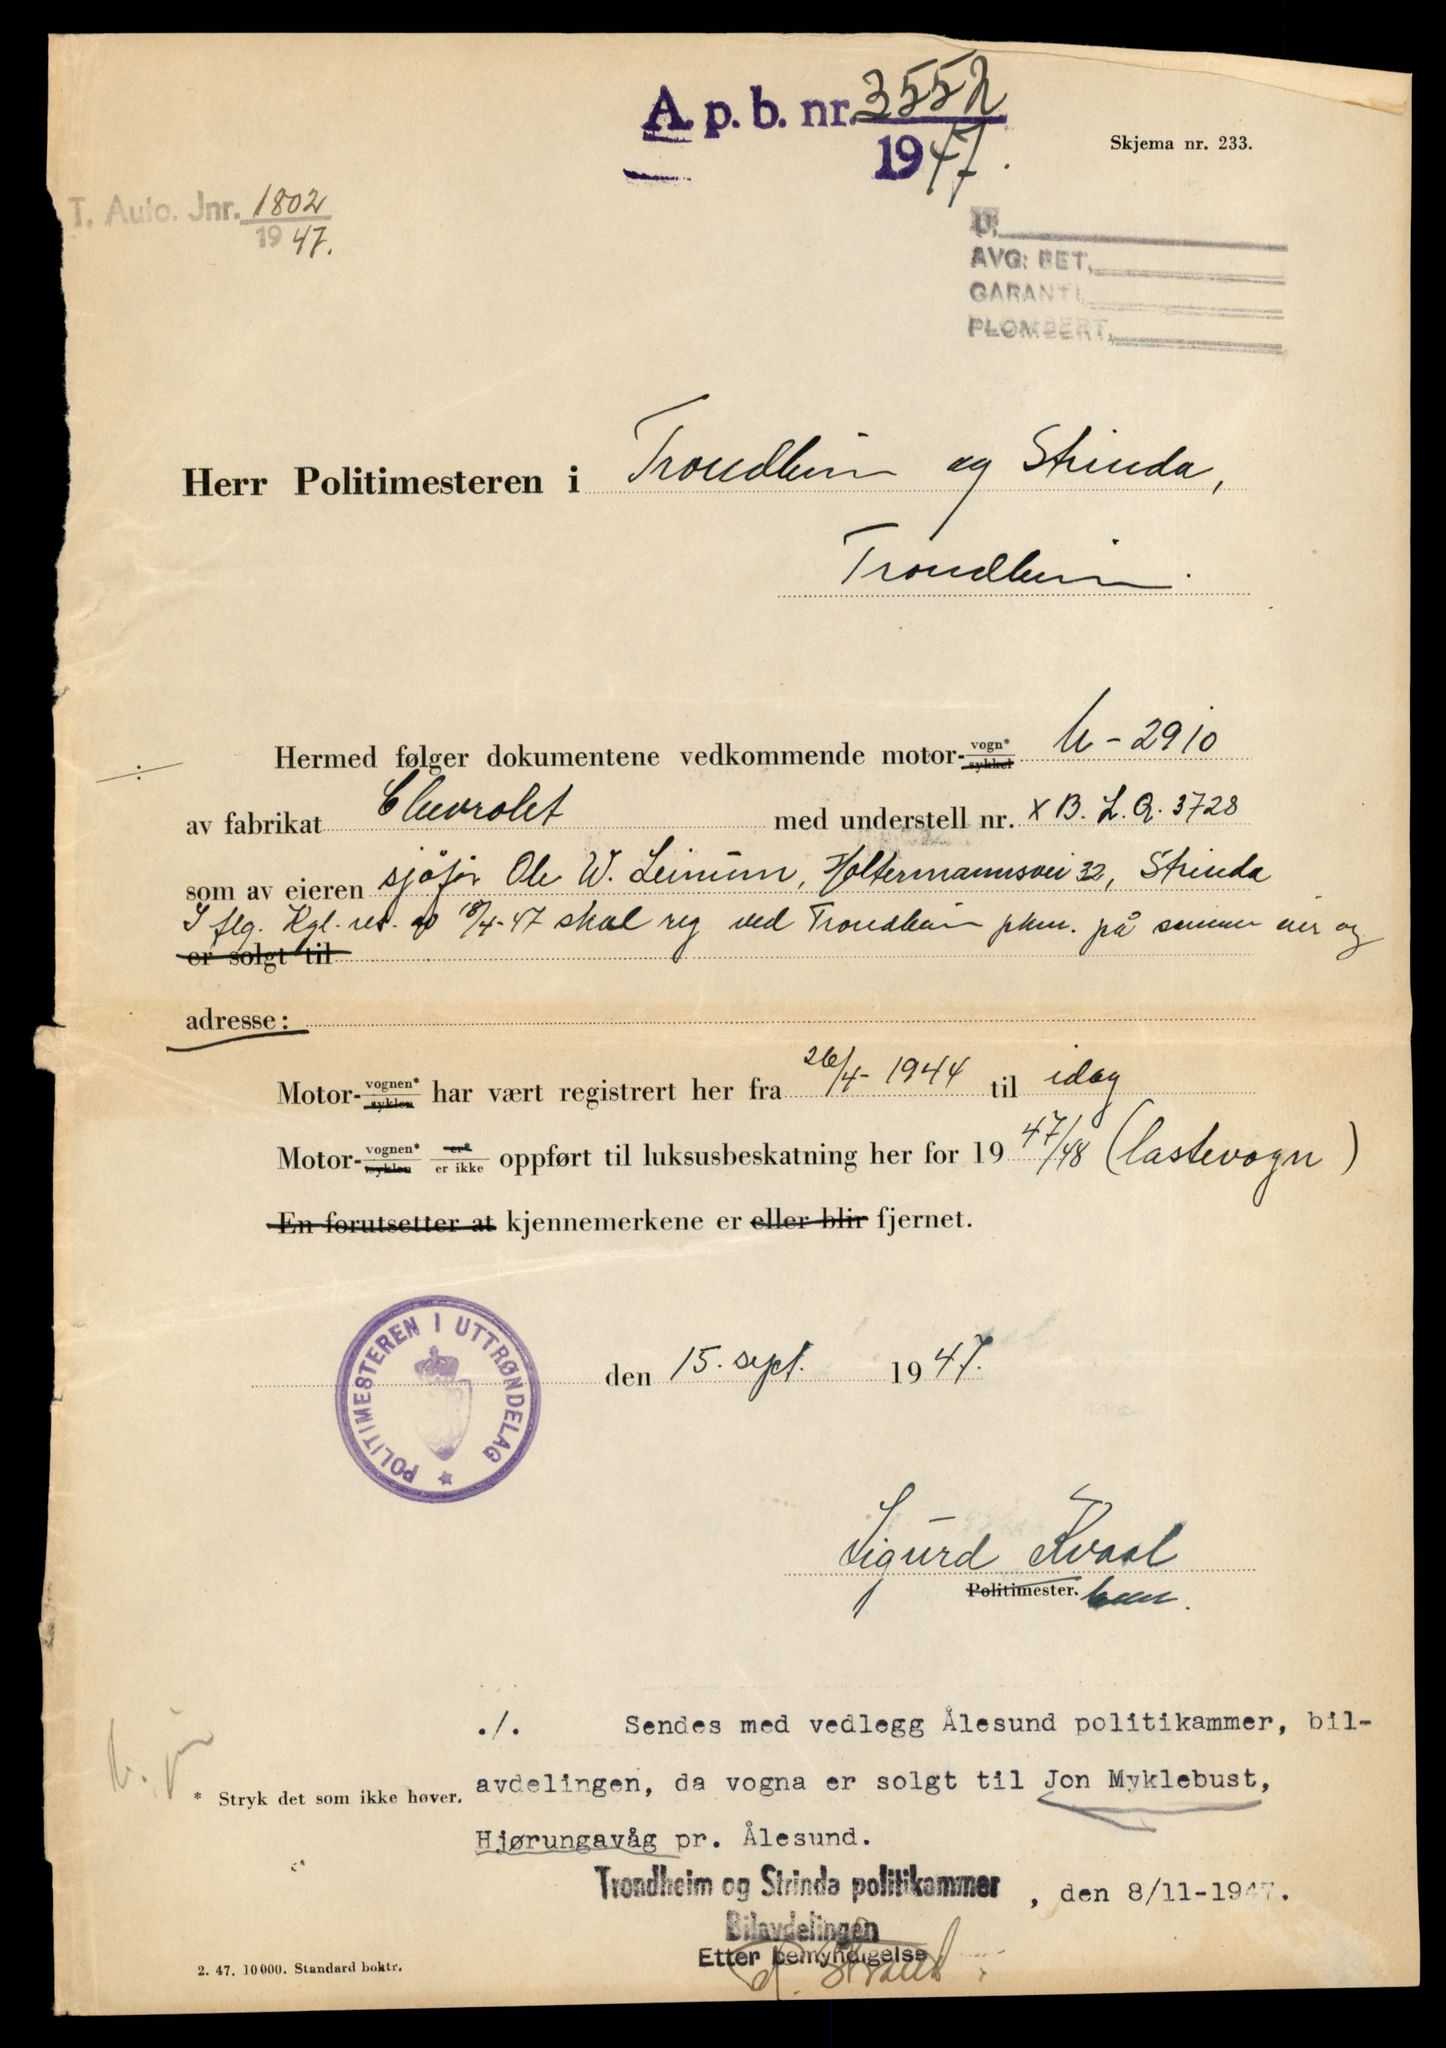 A. p. b. nr. 3552
1947.
Skjema nr. 233.
T. Auto. Jnr. 1802
1947.
U,
AVG: BET,
GARANTI,
PLOMBERT,
Herr Politimesteren i Trondheim og Strinda,
Trondheim.
Hermed følger dokumentene vedkommende motor-vogn*/sykkel U-2910
÷
av fabrikat Chevrolet med understell nr. x B. L. Q. 3728
som av eieren sjåfør Ole W. Leinum, Holtermannsvei 32, Strinda
I flg. Kgl. res. av 18/4-47 skal reg ved Trondheim pkm. på samme eier og
er solgt til
adresse:
Motor-vognen*/syklen har vært registrert her fra 26/4-1944 til idag
Motor-vognen*/syklen er*/er ikke oppført til luksusbeskatning her for 1947/48 (lastevogn)
En forutsetter at kjennemerkene er eller blir fjernet.
POLITIMESTEREN I UTTRØNDELAG
den 15. sept. 1947.
Sigurd Kvaal
Politimester.
./. Sendes med vedlegg Ålesund politikammer, bil-
* Stryk det som ikke høver. avdelingen, da vogna er solgt til Jon Myklebust,
Hjørungavåg pr. Ålesund.
Trondheim og Strinda politikammer, den 8/11-1947.
Bilavdelingen
Etter bemyndigelse
2. 47. 10 000. Standard boktr.